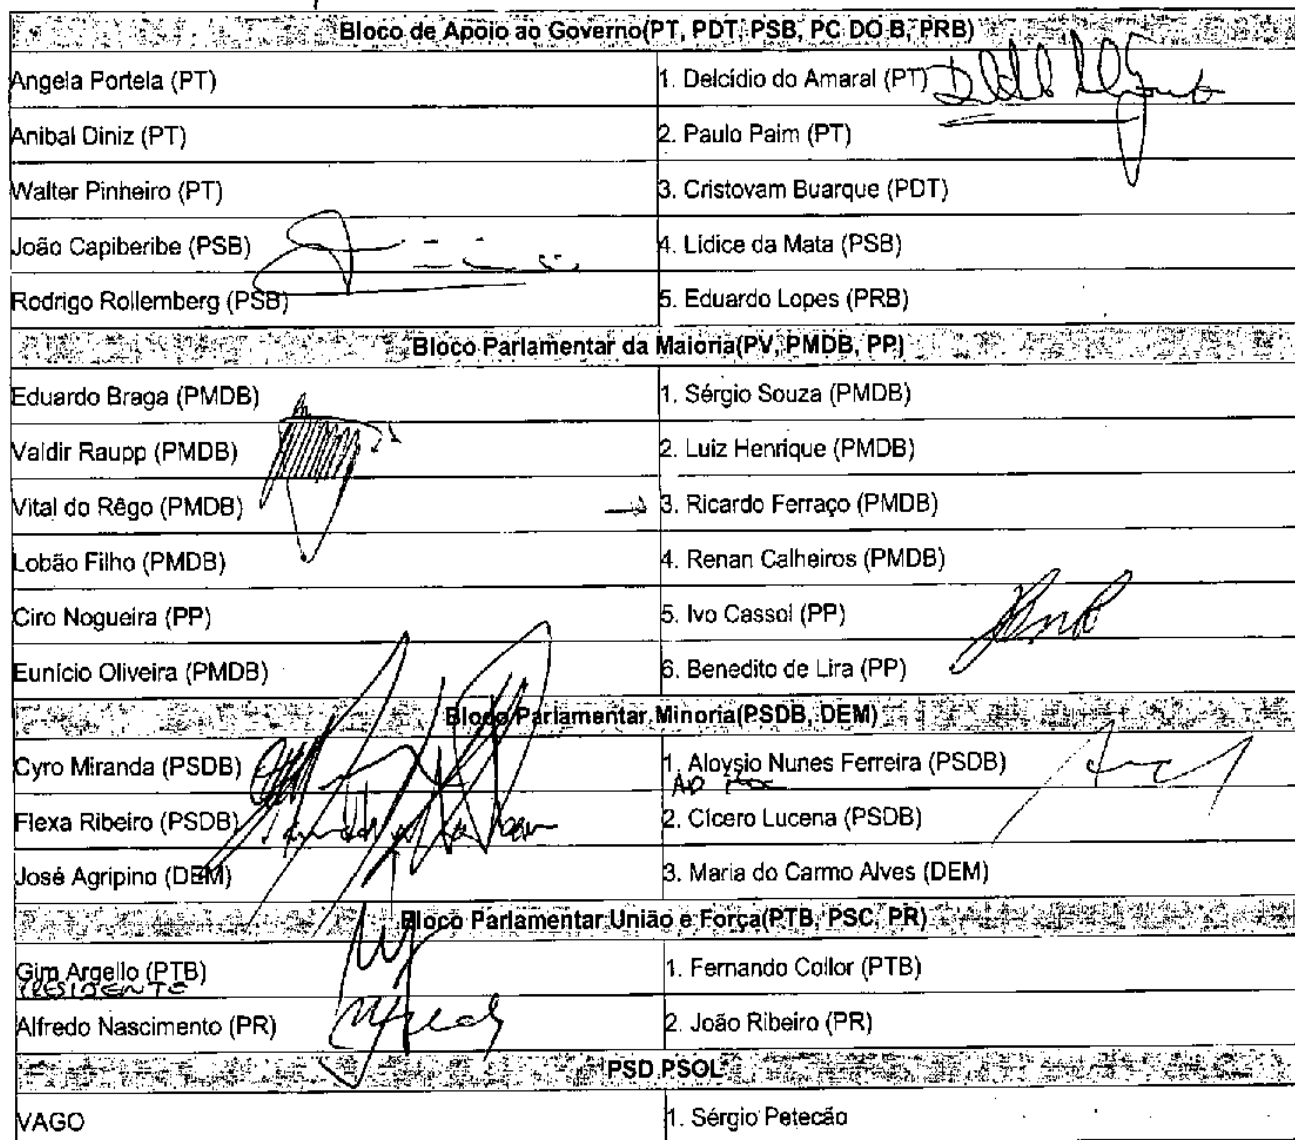 Bloco de Apoio ao Governo(PT, PDT, PSB, PC DO B, PRB)
Angela Portela (PT) 1. Delcídio do Amaral (PT)
Anibal Diniz (PT) 2. Paulo Paim (PT)
Walter Pinheiro (PT) 3. Cristovam Buarque (PDT)
João Capiberibe (PSB) 4. Lídice da Mata (PSB)
Rodrigo Rollemberg (PSB) 5. Eduardo Lopes (PRB)
Bloco Parlamentar da Maioria(PV, PMDB, PP)
Eduardo Braga (PMDB) 1. Sérgio Souza (PMDB)
Valdir Raupp (PMDB) 2. Luiz Henrique (PMDB)
Vital do Rêgo (PMDB) 3. Ricardo Ferraço (PMDB)
Lobão Filho (PMDB) 4. Renan Calheiros (PMDB)
Ciro Nogueira (PP) 5. Ivo Cassol (PP)
Eunício Oliveira (PMDB) 6. Benedito de Lira (PP)
Bloco Parlamentar Minoria(PSDB, DEM)
Cyro Miranda (PSDB) 1. Aloysio Nunes Ferreira (PSDB)
AD HOC
Flexa Ribeiro (PSDB) 2. Cícero Lucena (PSDB)
José Agripino (DEM) 3. Maria do Carmo Alves (DEM)
Bloco Parlamentar União e Força(PTB, PSC, PR)
Gim Argello (PTB) 1. Fernando Collor (PTB)
PRESIDENTE
Alfredo Nascimento (PR) 2. João Ribeiro (PR)
PSD PSOL
VAGO 1. Sérgio Petecão